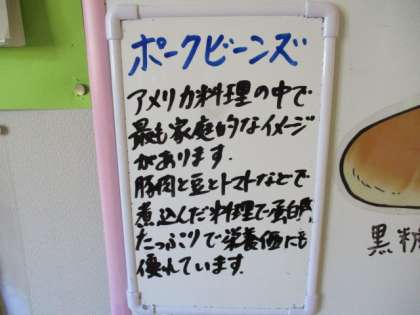 ポークビーンズ
アメリカ料理の中で
最も家庭的なイメージ
があります.
豚肉と豆とトマトなどで
煮込んだ料理で蛋白質
たっぷりで栄養価にも
優れています.
黒糖